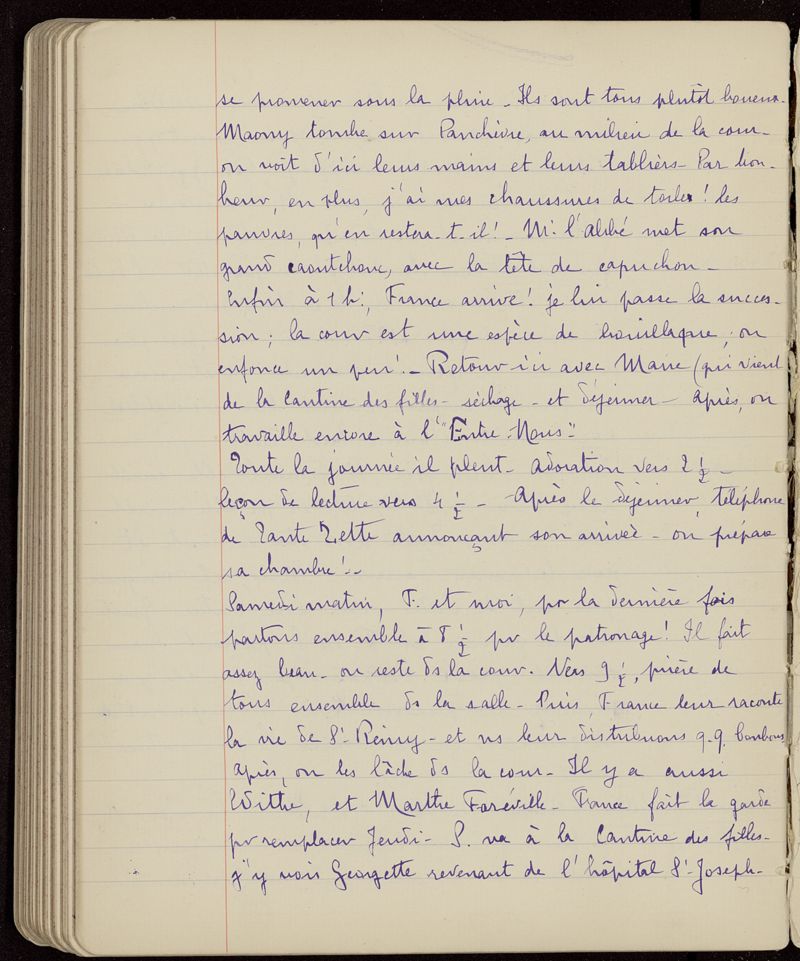 se promener sous la pluie - Ils sont tous plutôt boueux -
Maony tombe sur Panchèvre, au milieu de la cour -
on voit d'ici leurs mains et leurs tabliers - Par bon-
heur, en plus, j'ai mes chaussures de toile ! les
pauvres, qu'en restera-t-il ! - Mr. l'abbé met son
grand caoutchouc, avec la tête de capuchon -
Enfin à 1 h., France arrive ! je lui passe la succes-
sion ; la cour est une espèce de bouillaque ; on
enfonce un peu ! - Retour ici avec Marie (qui vient
de la Cantine des filles - séchage - et déjeuner - Après, on
travaille encore à l'"Entre-Nous" -
Toute la journée il pleut - adoration vers 2 1/2 -
leçon de lecture vers 4 1/2 - Après le déjeuner, téléphone
de Tante Zette annonçant son arrivée - on prépare
sa chambre ! -
Samedi matin, F. et moi, pr la dernière fois
partons ensemble à 8 1/2 pr le patronage ! Il fait
assez beau - on reste ds la cour. Vers 9 1/2, prière de
tous ensemble ds la salle - Puis, France leur raconte
la vie de St. Rémy - et ns leur distribuons q.q. bonbons
Après, on les lâche ds la cour - Il y a aussi
et Marthe Foréville - France fait la garde
pr remplacer Jeudi - va à la Cantine des filles -
j'y vois Georgette revenant de l'hôpital St. Joseph -